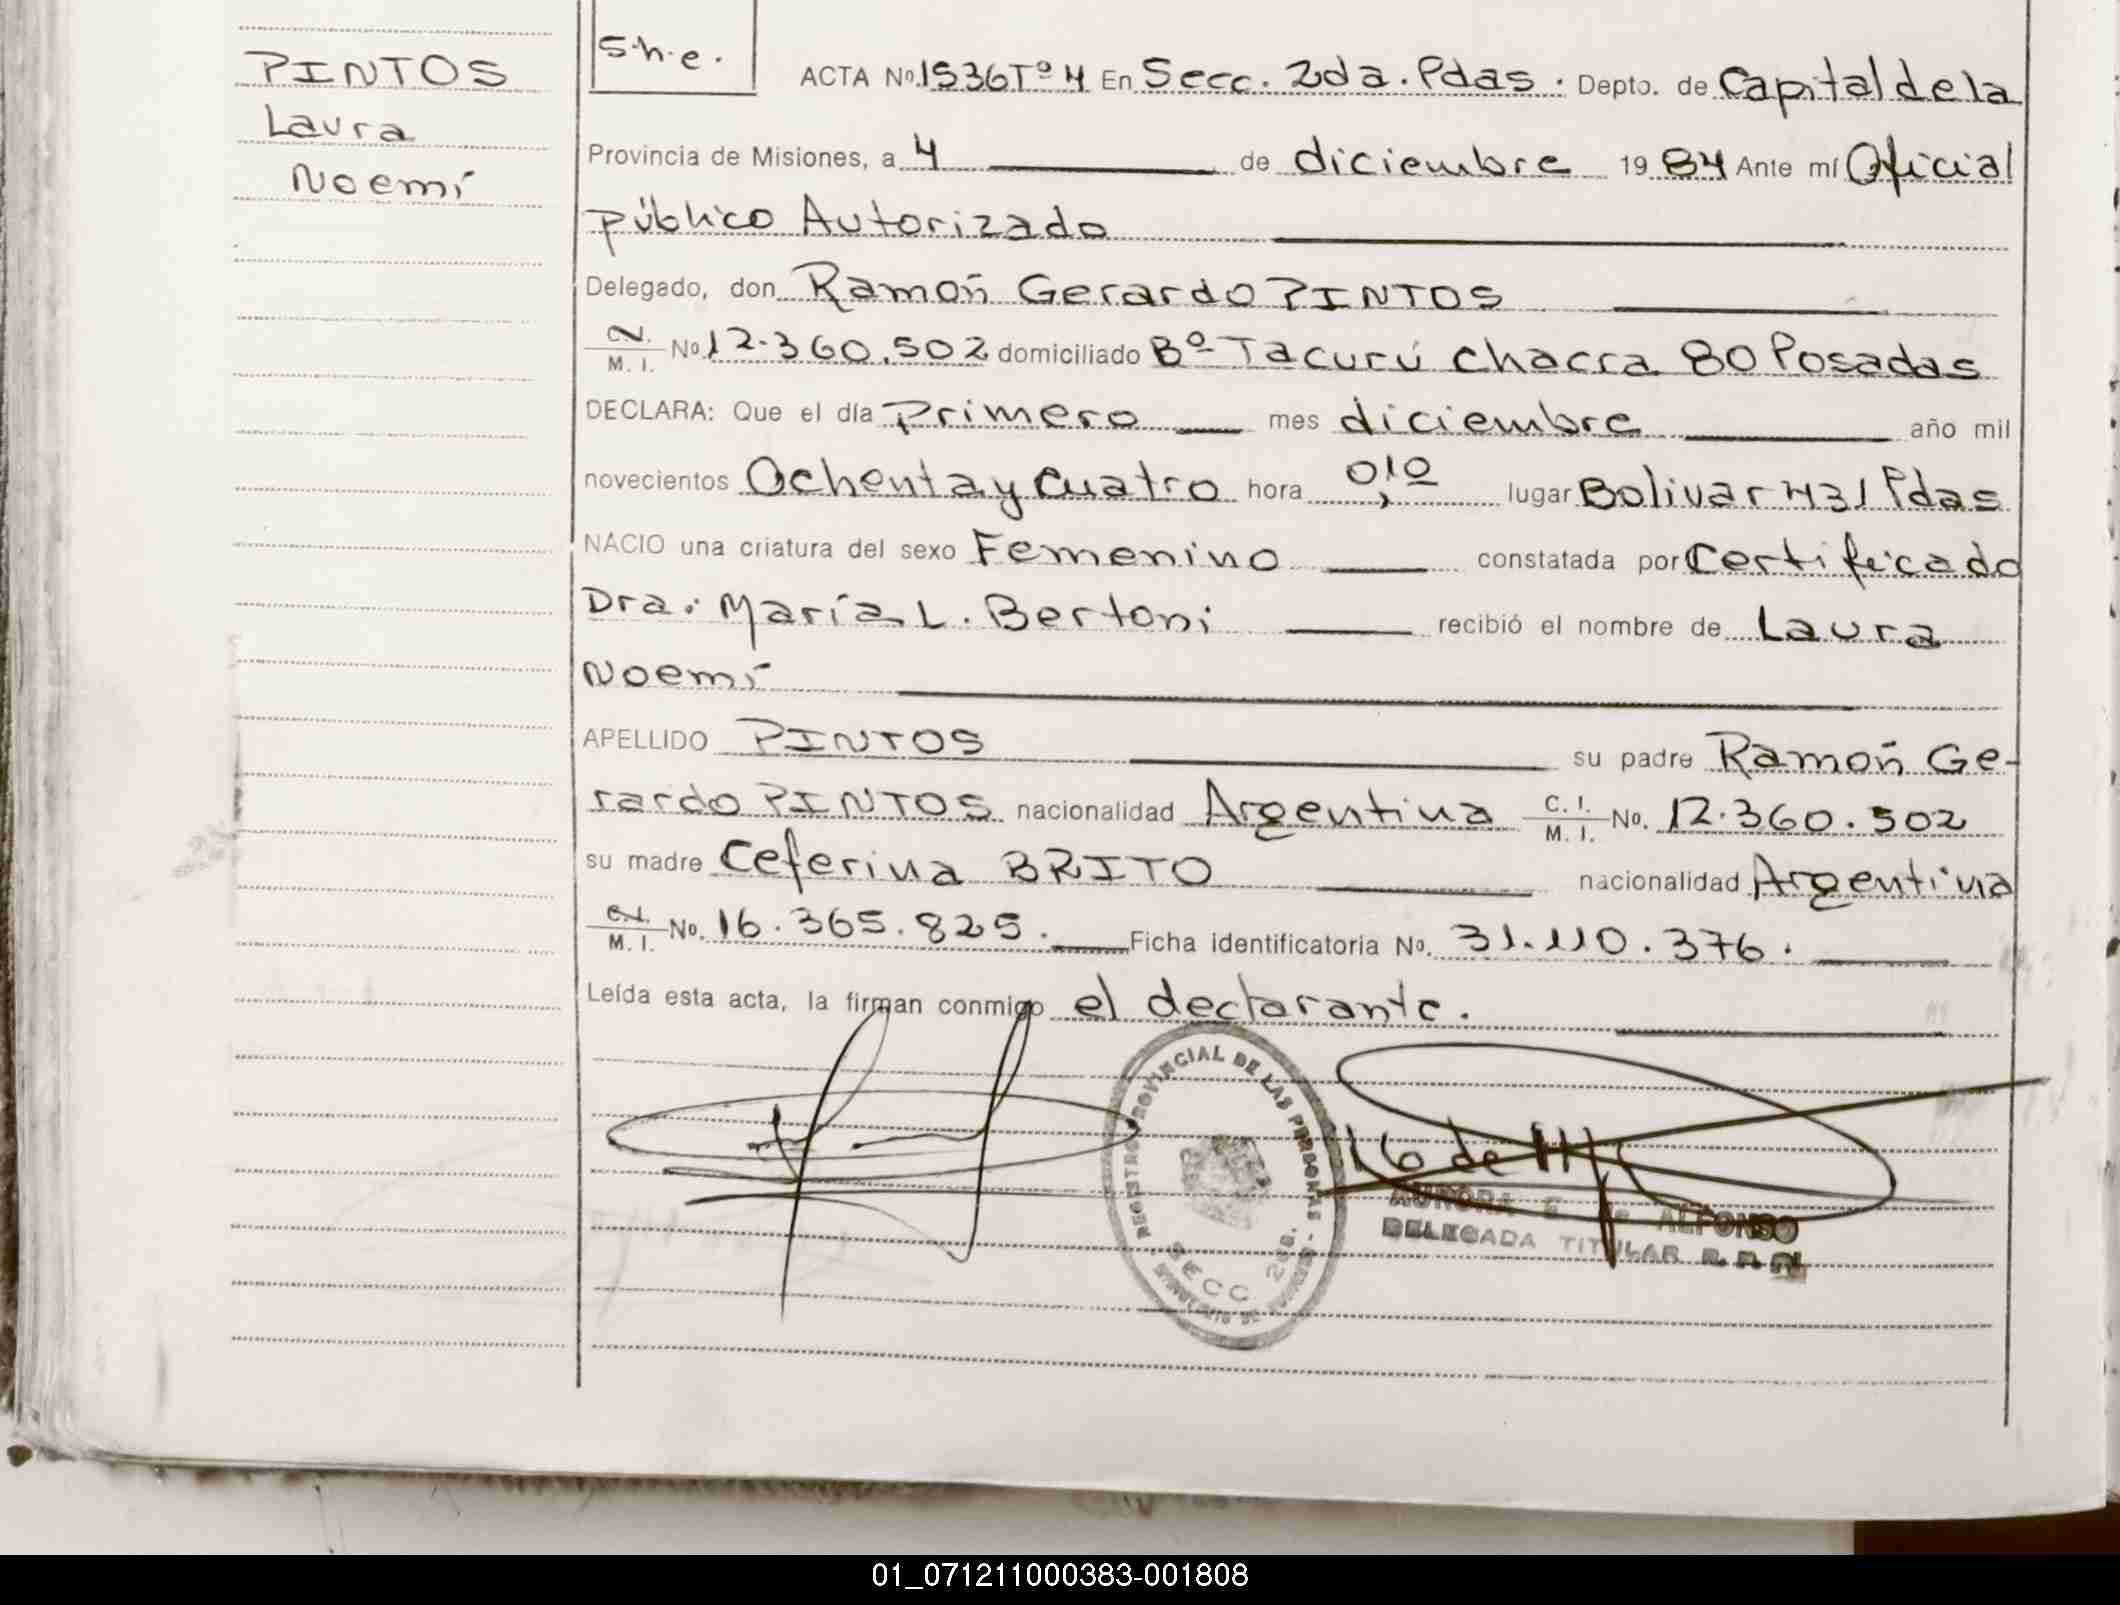 PINTOS
Laura
Noemí
s.h.e.
ACTA Nº 1536 Tº 4 En Secc. 2da. Pdas. Depto. de Capital de la
Provincia de Misiones, a 4 de diciembre 1984 Ante mí Oficial
público Autorizado
Delegado, don Ramón Gerardo PINTOS
M. I. Nº 12.360.502 domiciliado Bº Tacurú Chacra 80 Posadas
DECLARA: Que el día Primero mes diciembre año mil
novecientos Ochenta y Cuatro hora 0,10 lugar Bolivar 431 Pdas
NACIO una criatura del sexo Femenino constatada por Certificado
Dra. María L. Bertoni recibió el nombre de Laura
Noemí
APELLIDO PINTOS su padre Ramón Ge-
rardo PINTOS nacionalidad Argentina C. I. M. I. Nº. 12.360.502
su madre Ceferina BRITO nacionalidad Argentina
M. I. Nº. 16.365.825. Ficha identificatoria Nº. 31.110.376.
Leída esta acta, la firman conmigo el declarante.
REGISTRO PROVINCIAL DE LAS PERSONAS
SECC 2da.
AURORA E. de ALFONSO
DELEGADA TITULAR R. P. P.
01_071211000383-001808